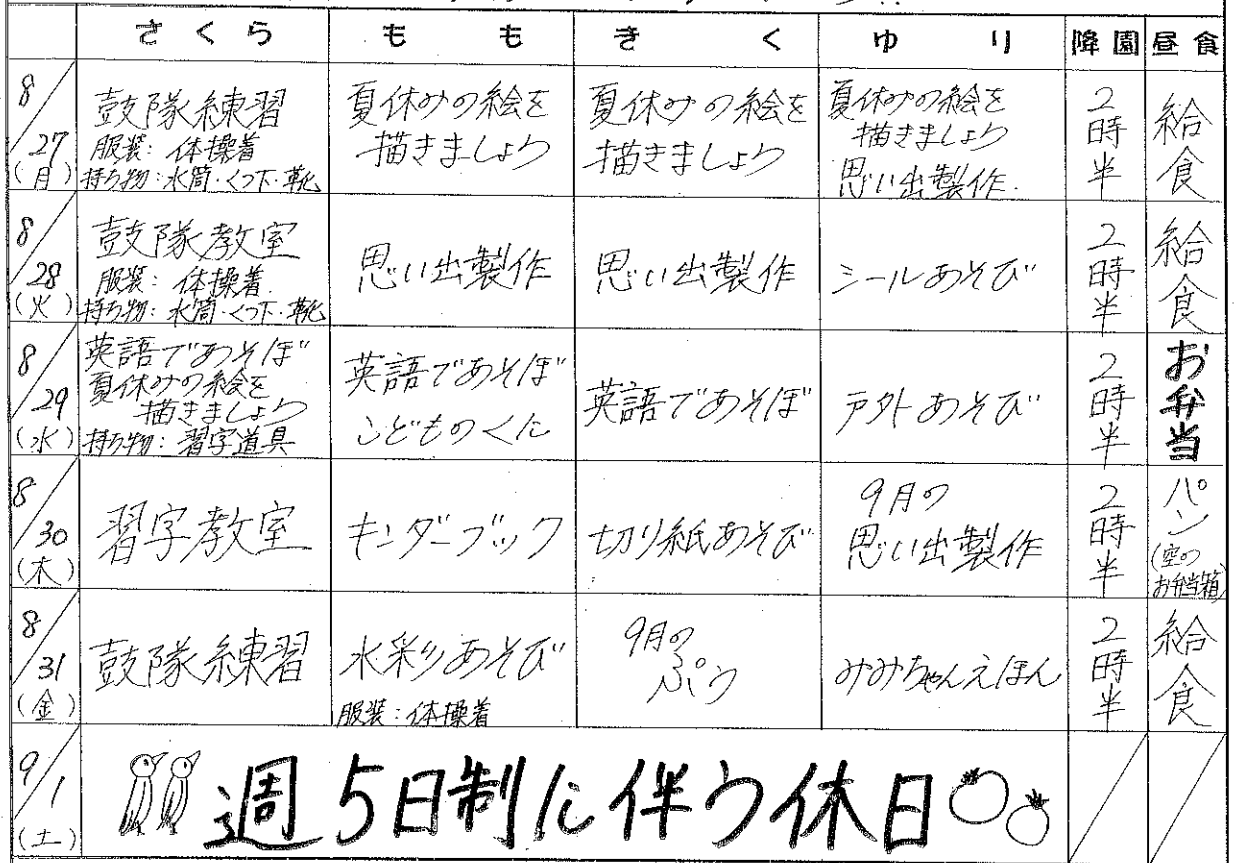 さくら もも きく ゆり 降園 昼食
8/27(月)
鼓隊練習
服装:体操着
持ち物:水筒・くつ下・靴
夏休みの絵を
描きましょう
夏休みの絵を
描きましょう
夏休みの絵を
描きましょう
思い出製作.
2時半
給食
8/28(火)
鼓隊教室
服装:体操着.
持ち物:水筒・くつ下・靴
思い出製作
思い出製作
シールあそび
2時半
給食
8/29(水)
英語であそぼ
夏休みの絵を
描きましょう
持ち物:習字道具
英語であそぼ
こどものくに
英語であそぼ
戸外あそび
2時半
お弁当
8/30(木)
習字教室
キンダーブック
切り紙あそび
9月の
思い出製作
2時半
パン
(空の
お弁当箱)
8/31(金)
鼓隊練習
水彩あそび
服装:体操着
9月の
ぷう
みみちゃんえほん
2時半
給食
9/1(土)
週5日制に伴う休日